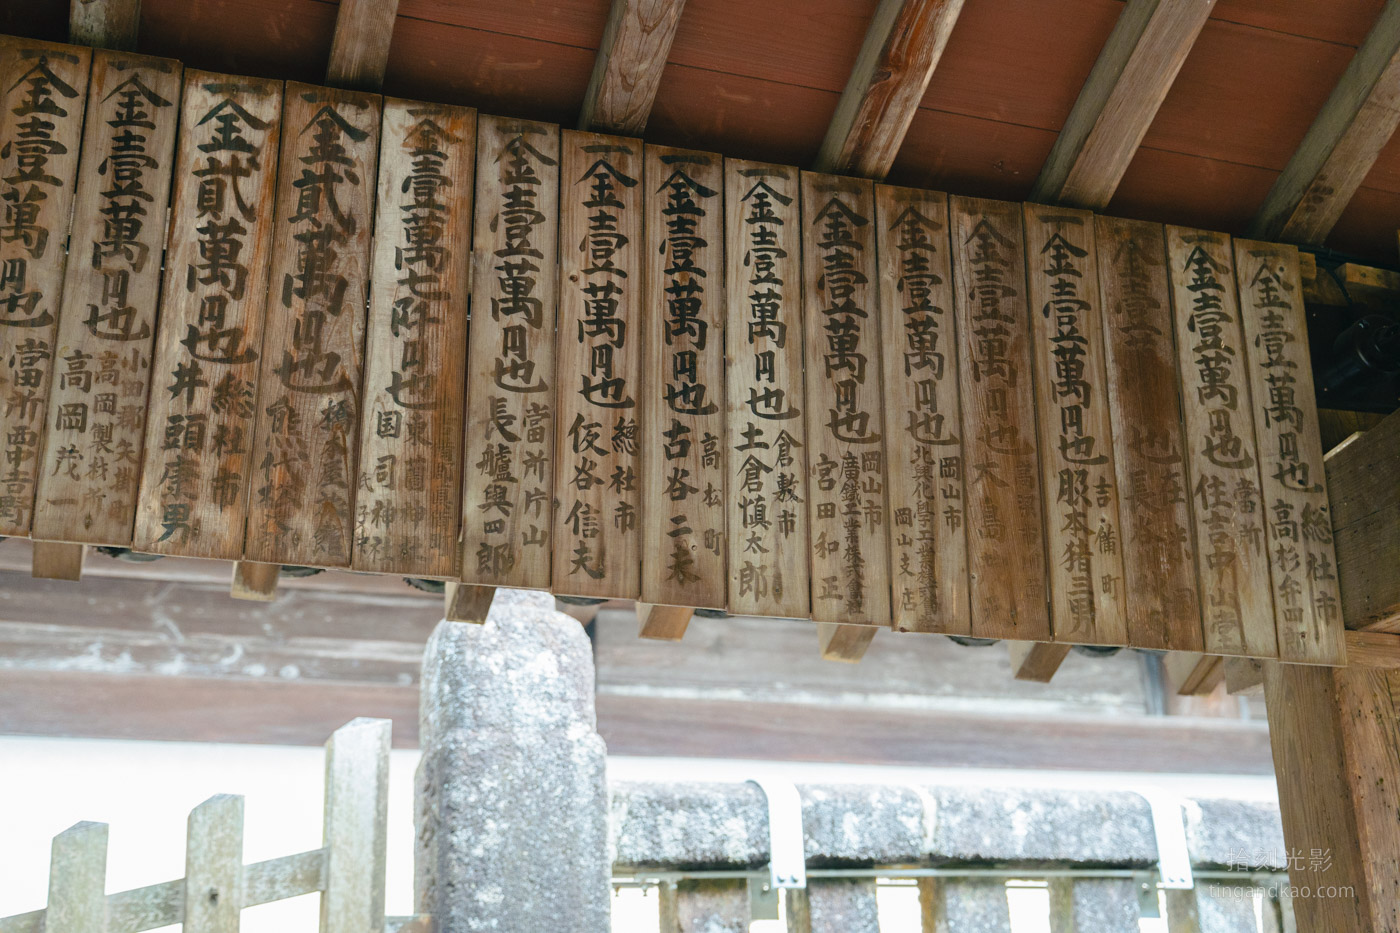 一金壹萬円也 総社市 高杉弁四郎
一金壹萬円也 當所 住吉中山堂
一金壹萬円也 長谷
一金壹萬円也 吉備町 服本猪三男
一金壹萬円也 大島
一金壹萬円也 岡山市 北興化学工業 岡山支店
一金壹萬円也 岡山市 廣鐵工業株式會社 宮田和正
一金壹萬円也 倉敷市 土倉慎太郎
一金壹萬円也 高松町 古谷二未
一金壹萬円也 總社市 仮谷信夫
一金壹萬円也 當所片山 長艫與四郎
一金壹萬七阡円也 東 国司神社 氏子中
一金貳萬円也 能代
一金貳萬円也 総社市 井頭康男
一金壹萬円也 小田郡矢掛町 高岡製材所 高岡茂一
一金壹萬円也 當所西中 吉野
拾刻光影
tingandkao.com